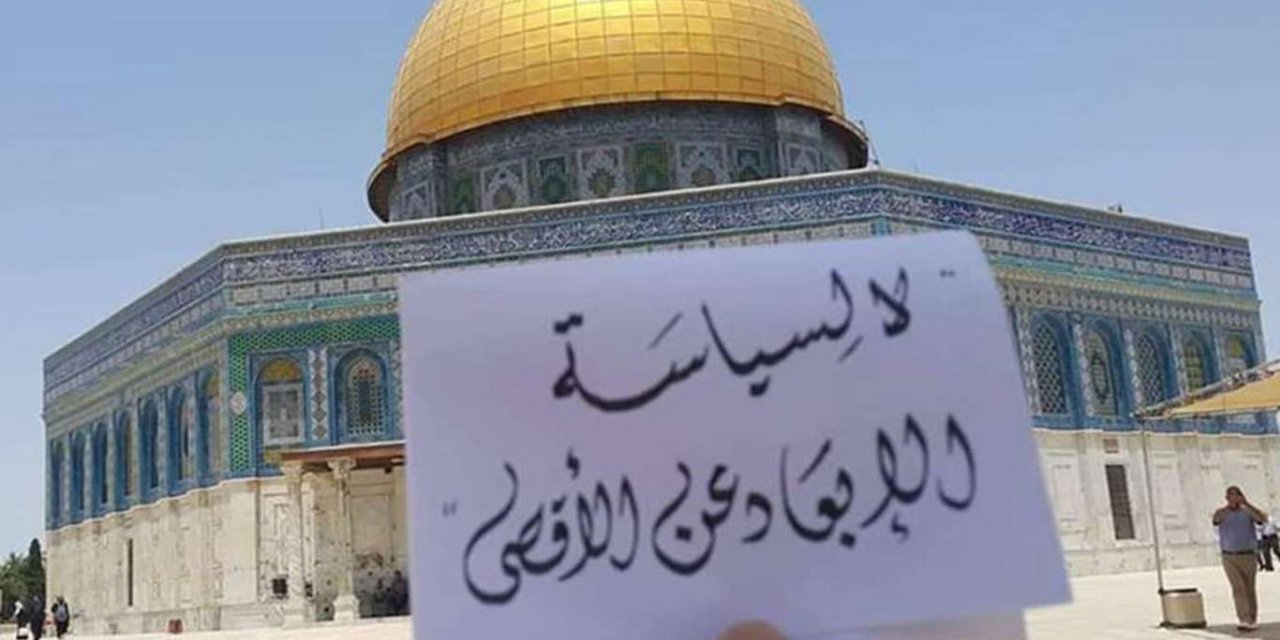 "لا لِسياسَة
الإبعَاد عن الأقصى"